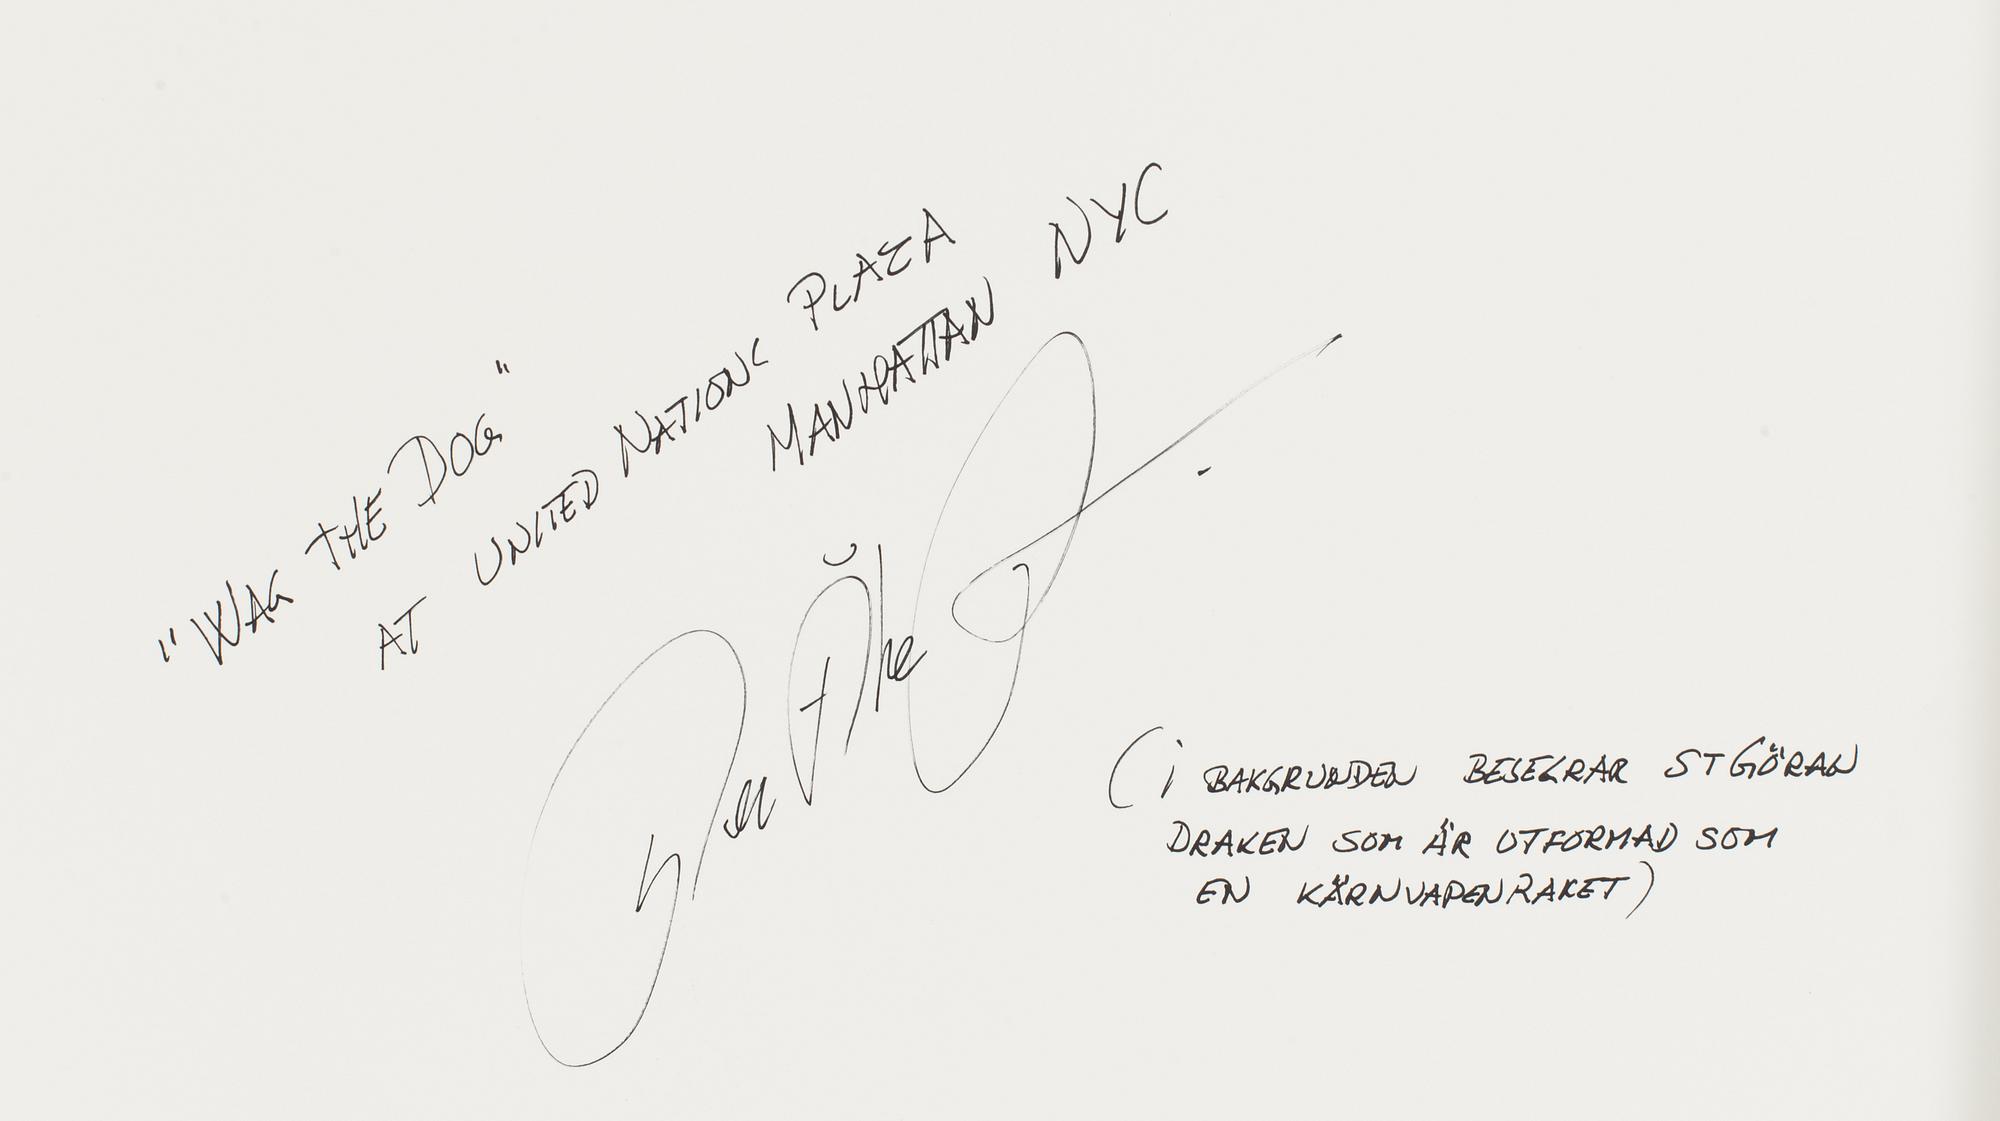 "WAG THE DOG"
AT UNITED NATIONS PLAZA
MANHATTAN NYC
(i BAKGRUNDEN BESEGRAR ST GÖRAN
DRAKEN SOM ÄR UTFORMAD SOM
EN KÄRNVAPENRAKET)